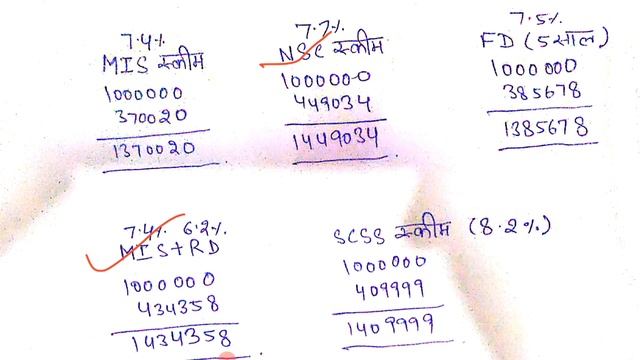 7.4%
MIS स्कीम
1000000
370020
1370020
7.7%
NSC स्कीम
1000000
449034
1449034
7.5%
FD (5 साल)
1000000
385678
1385678
7.4% 6.2%
MIS+RD
1000000
434358
1434358
SCSS स्कीम (8.2%)
1000000
409999
1409999